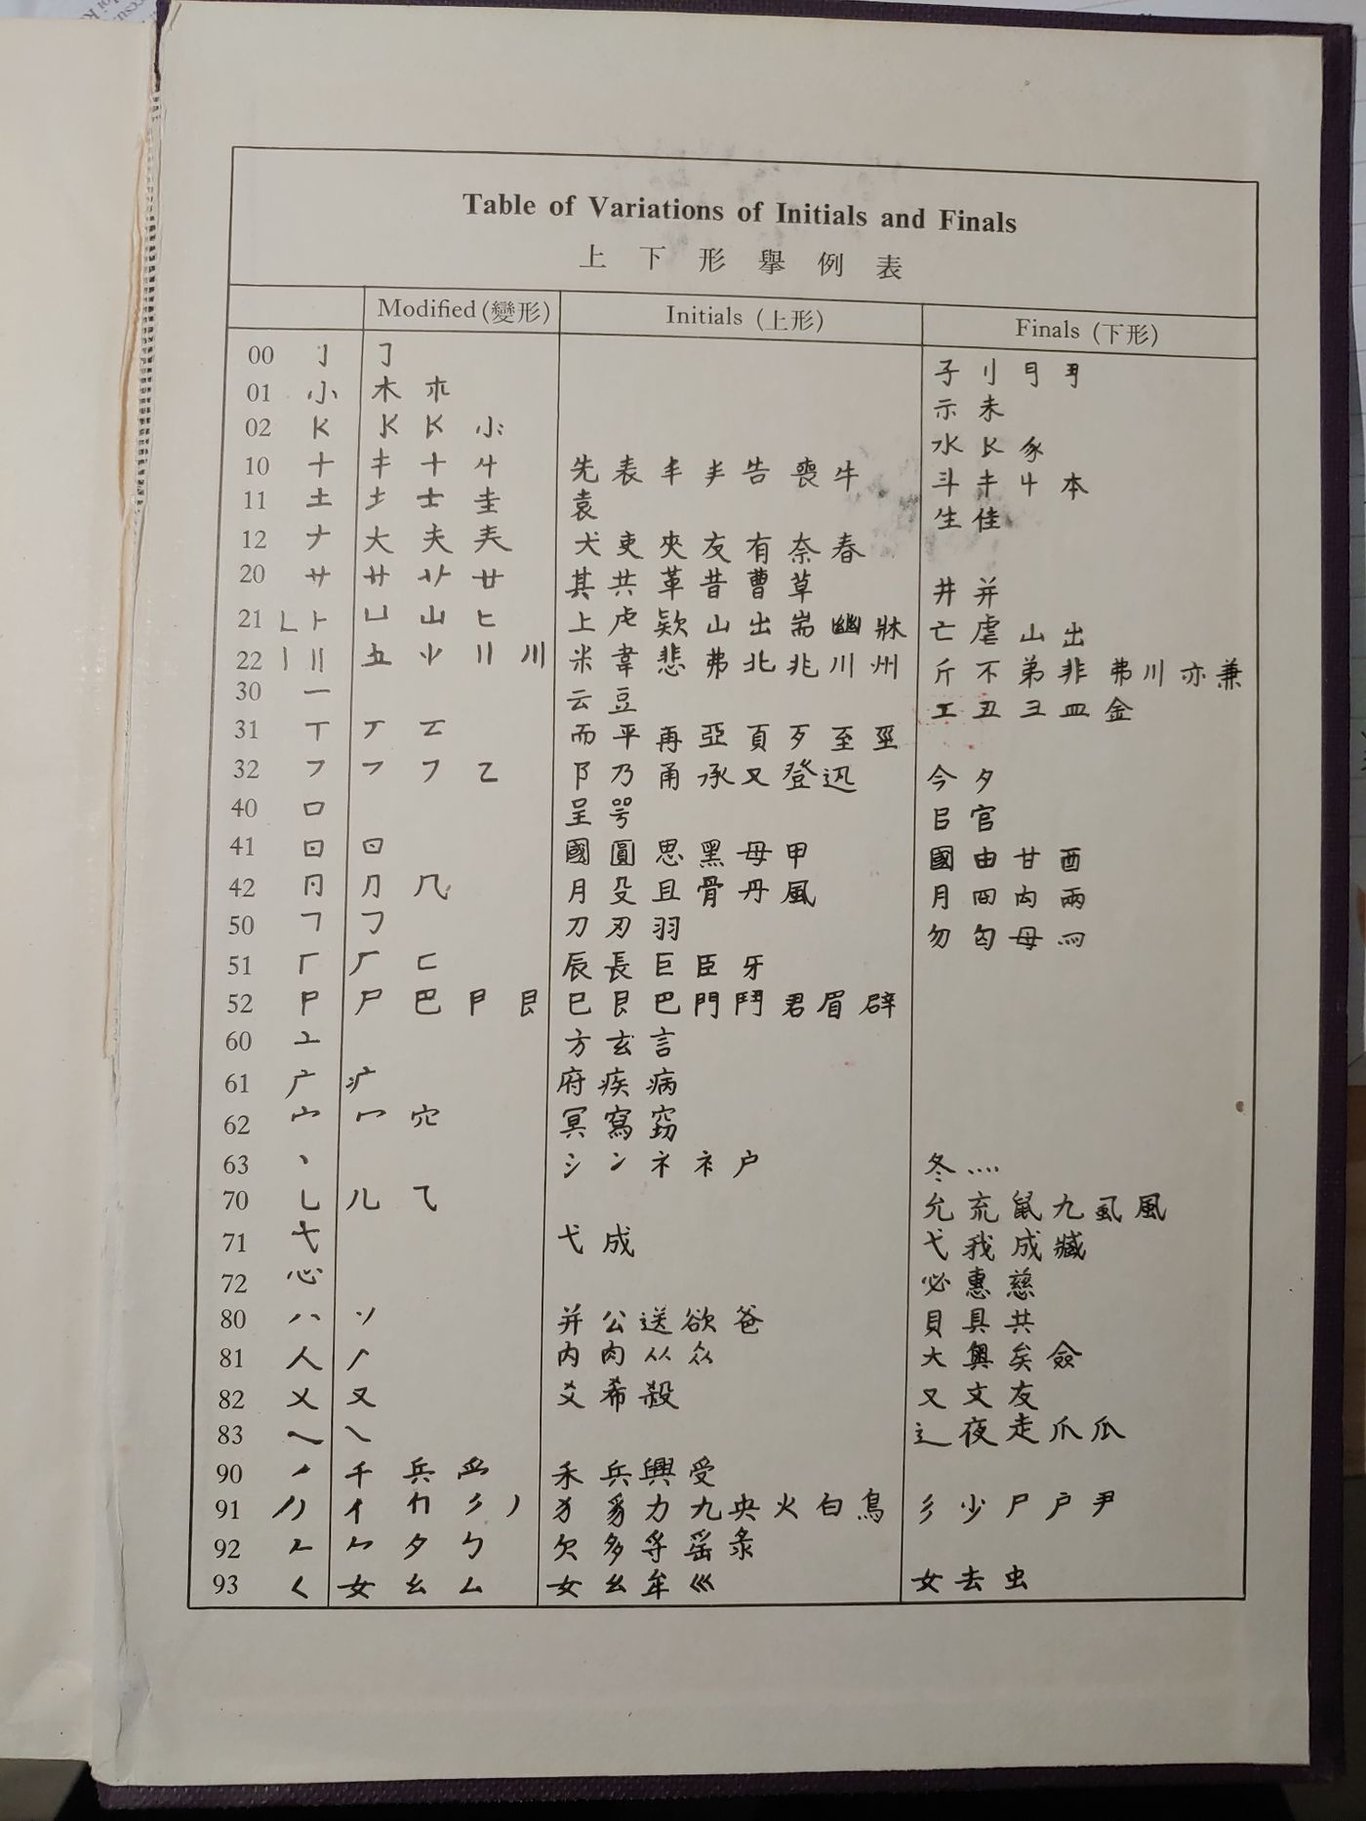 Table of Variations of Initials and Finals
上下形舉例表
Modified (變形) Initials (上形) Finals (下形)
00 亅 子 刂
01 小 木 示 未
02 水 豕
10 十 十 先 表 告 喪 牛 斗 丰 本
11 土 士 圭 袁 生 佳
12 ナ 大 夫 犬 吏 夾 友 有 奈 春
20 廾 廿 其 共 革 昔 曹 草 井 并
21 凵 山 匕 上 虍 山 出 耑 幽 亡 虐 山 出
22 川 米 韋 悲 弗 北 兆 川 州 斤 不 弟 非 弗 川 亦 兼
30 一 云 豆 工 丑 彐 皿 金
31 丅 而 平 再 亞 頁 歹 至 巠
32 乙 阝 乃 甬 承 又 登 今 夕
40 口 呈 咢 㠯 官
41 日 國 圓 思 黑 母 甲 國 由 甘 酉
42 月 殳 且 骨 丹 風 月 雨
50 刀 刃 羽 勿 匃 母
51 厂 匚 辰 長 巨 臣 牙
52 尸 巴 艮 巳 艮 巴 門 鬥 君 眉 辟
60 亠 方 玄 言
61 广 疒 府 疾 病
62 宀 冖 穴 冥 寫 窈
63 丶 氵 冫 礻 衤 户 冬 灬
70 乚 儿 允 㐬 鼠 九 虱 風
71 弋 弋 成 弋 我 成 臧
72 心 必 惠 慈
80 八 丷 并 公 送 欲 爸 貝 具 共
81 人 内 肉 从 大 奧 矣 僉
82 乂 又 爻 希 殺 又 文 友
83 ㇏ 辶 夜 走 爪 瓜
90 千 兵 禾 兵 興 受
91 彡 丿 犭 力 九 央 火 白 鳥 彡 少 尸 户 尹
92 夕 勹 欠 多 彔
93 く 女 幺 厶 女 幺 牟 巛 女 去 虫